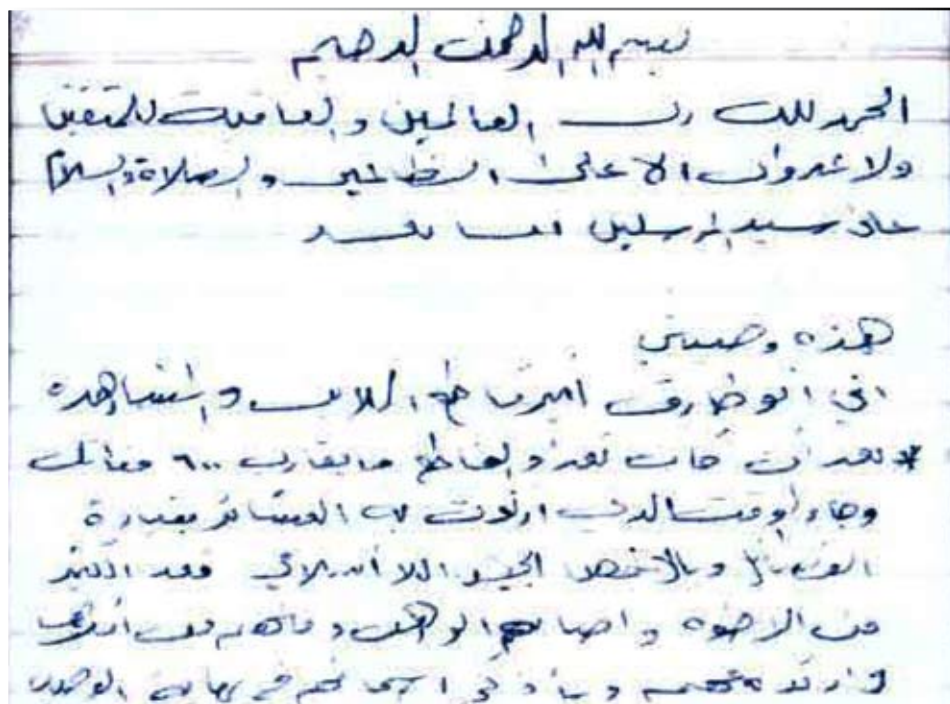 بسم الله الرحمن الرحيم
الحمد لله رب العالمين والعاقبة للمتقين
ولا عدوان الا على الظالمين والصلاة والسلام
على سيد المرسلين اما بعد
هذه وصيتي
اني ابو طارق امير قاطع البلد والمشاهدة
بعد ان كان تعداد القاطع ما يقارب ٦٠٠ مقاتل
وجاء الوقت الذي ارتدت به العشائر بقيادة
الفصائل وبالاخص الجيش اللا اسلامي فقد الكثير
من الاخوة واصابهم الوهن ومنهم من
في نهاية